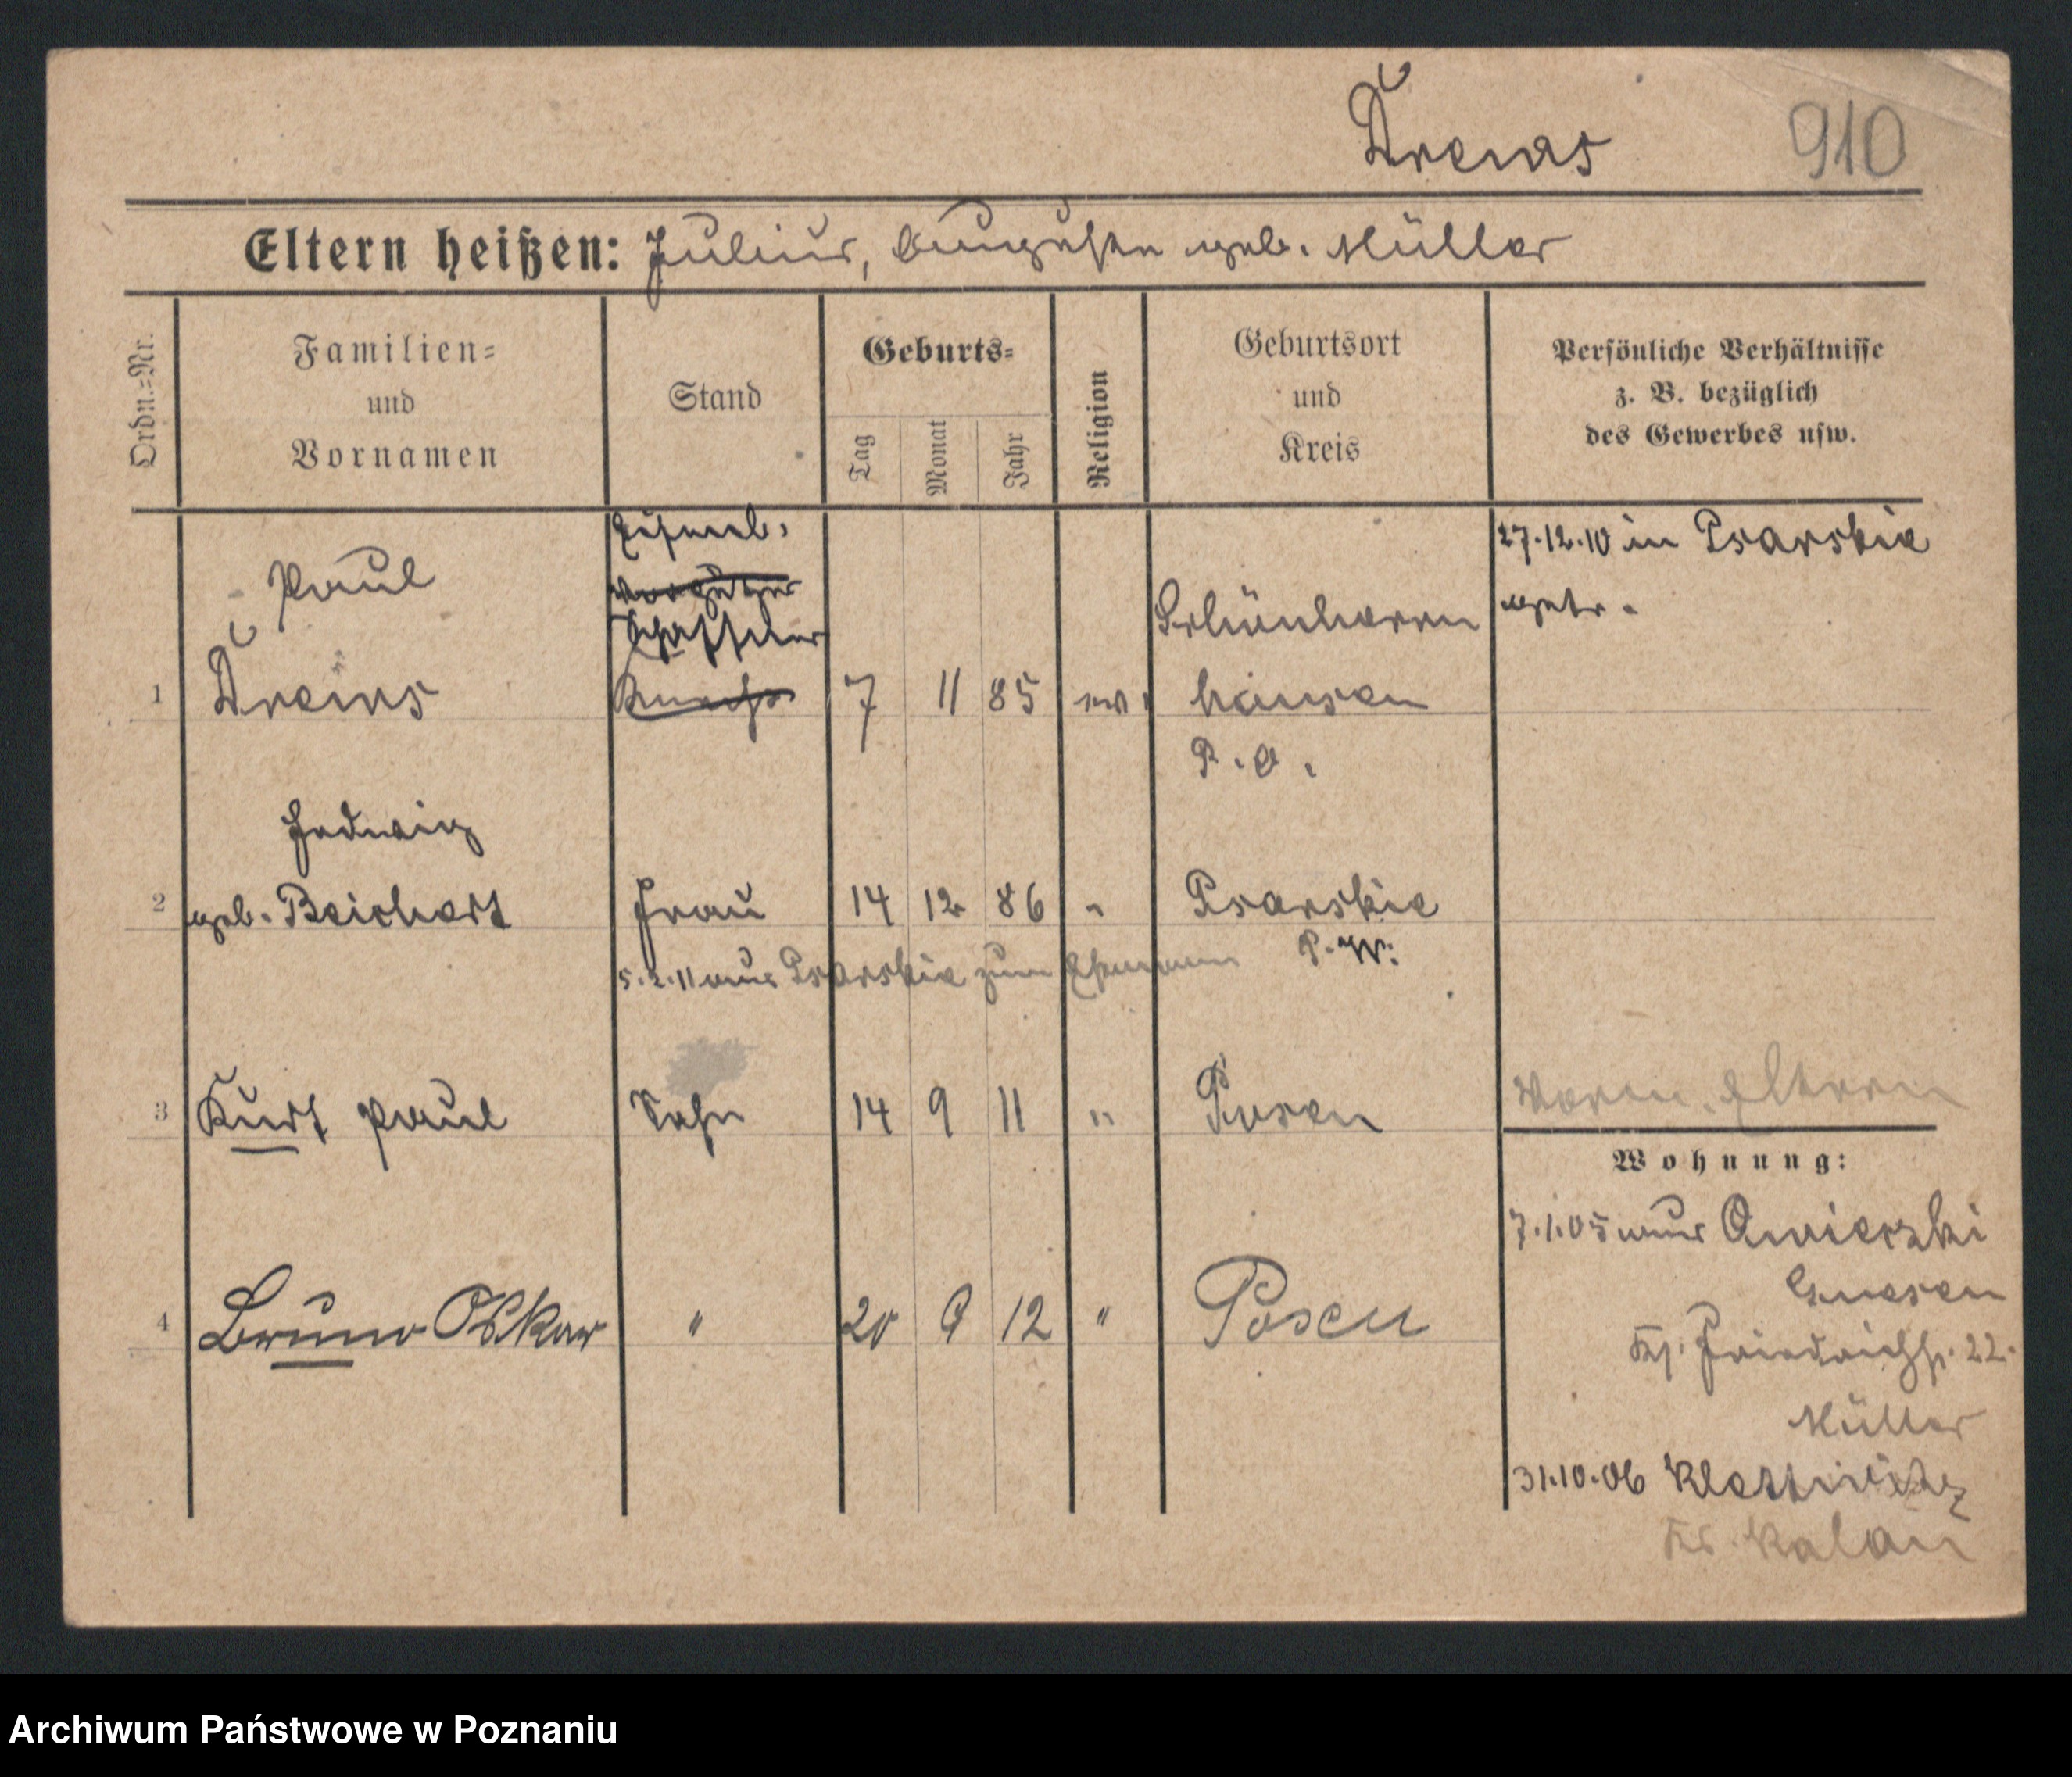 Drews
910
Eltern heißen: Julius, Auguste geb. Müller
Ordn.=Nr.
Familien=
und
Vornamen
Stand
Geburts=
Tag
Monat
Jahr
Religion
Geburtsort
und
Kreis
Persönliche Verhältnisse
z. B. bezüglich
des Gewerbes usw.
Eisenb.
Schaffner
Knecht
Paul
1 Drews
7 11 85 ev.
Schönherrn
hausen
P. O.
27.12.10 in Psarskie
getr.
Hedwig
2 geb. Beichert Frau 14 12 86 " Psarskie
P. W.
5.2.11 aus Psarskie zum Ehemann
3 Kurt Paul Sohn 14 9 11 " Posen
Eltern
4 Bruno Oskar " 20 9 12 " Posen
Wohnung:
7.1.05 aus Owierzki
Gnesen
Friedrichstr. 22.
Müller
31.10.06 Klettwitz
Kr. Kalau
Archiwum Państwowe w Poznaniu